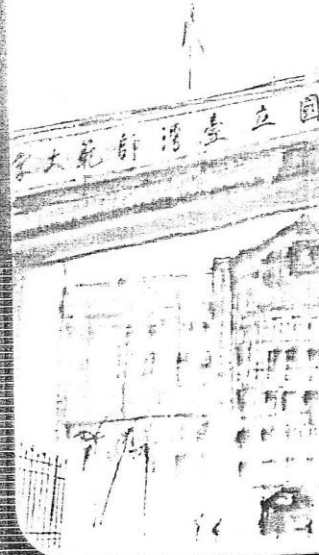 國立臺灣師範大學